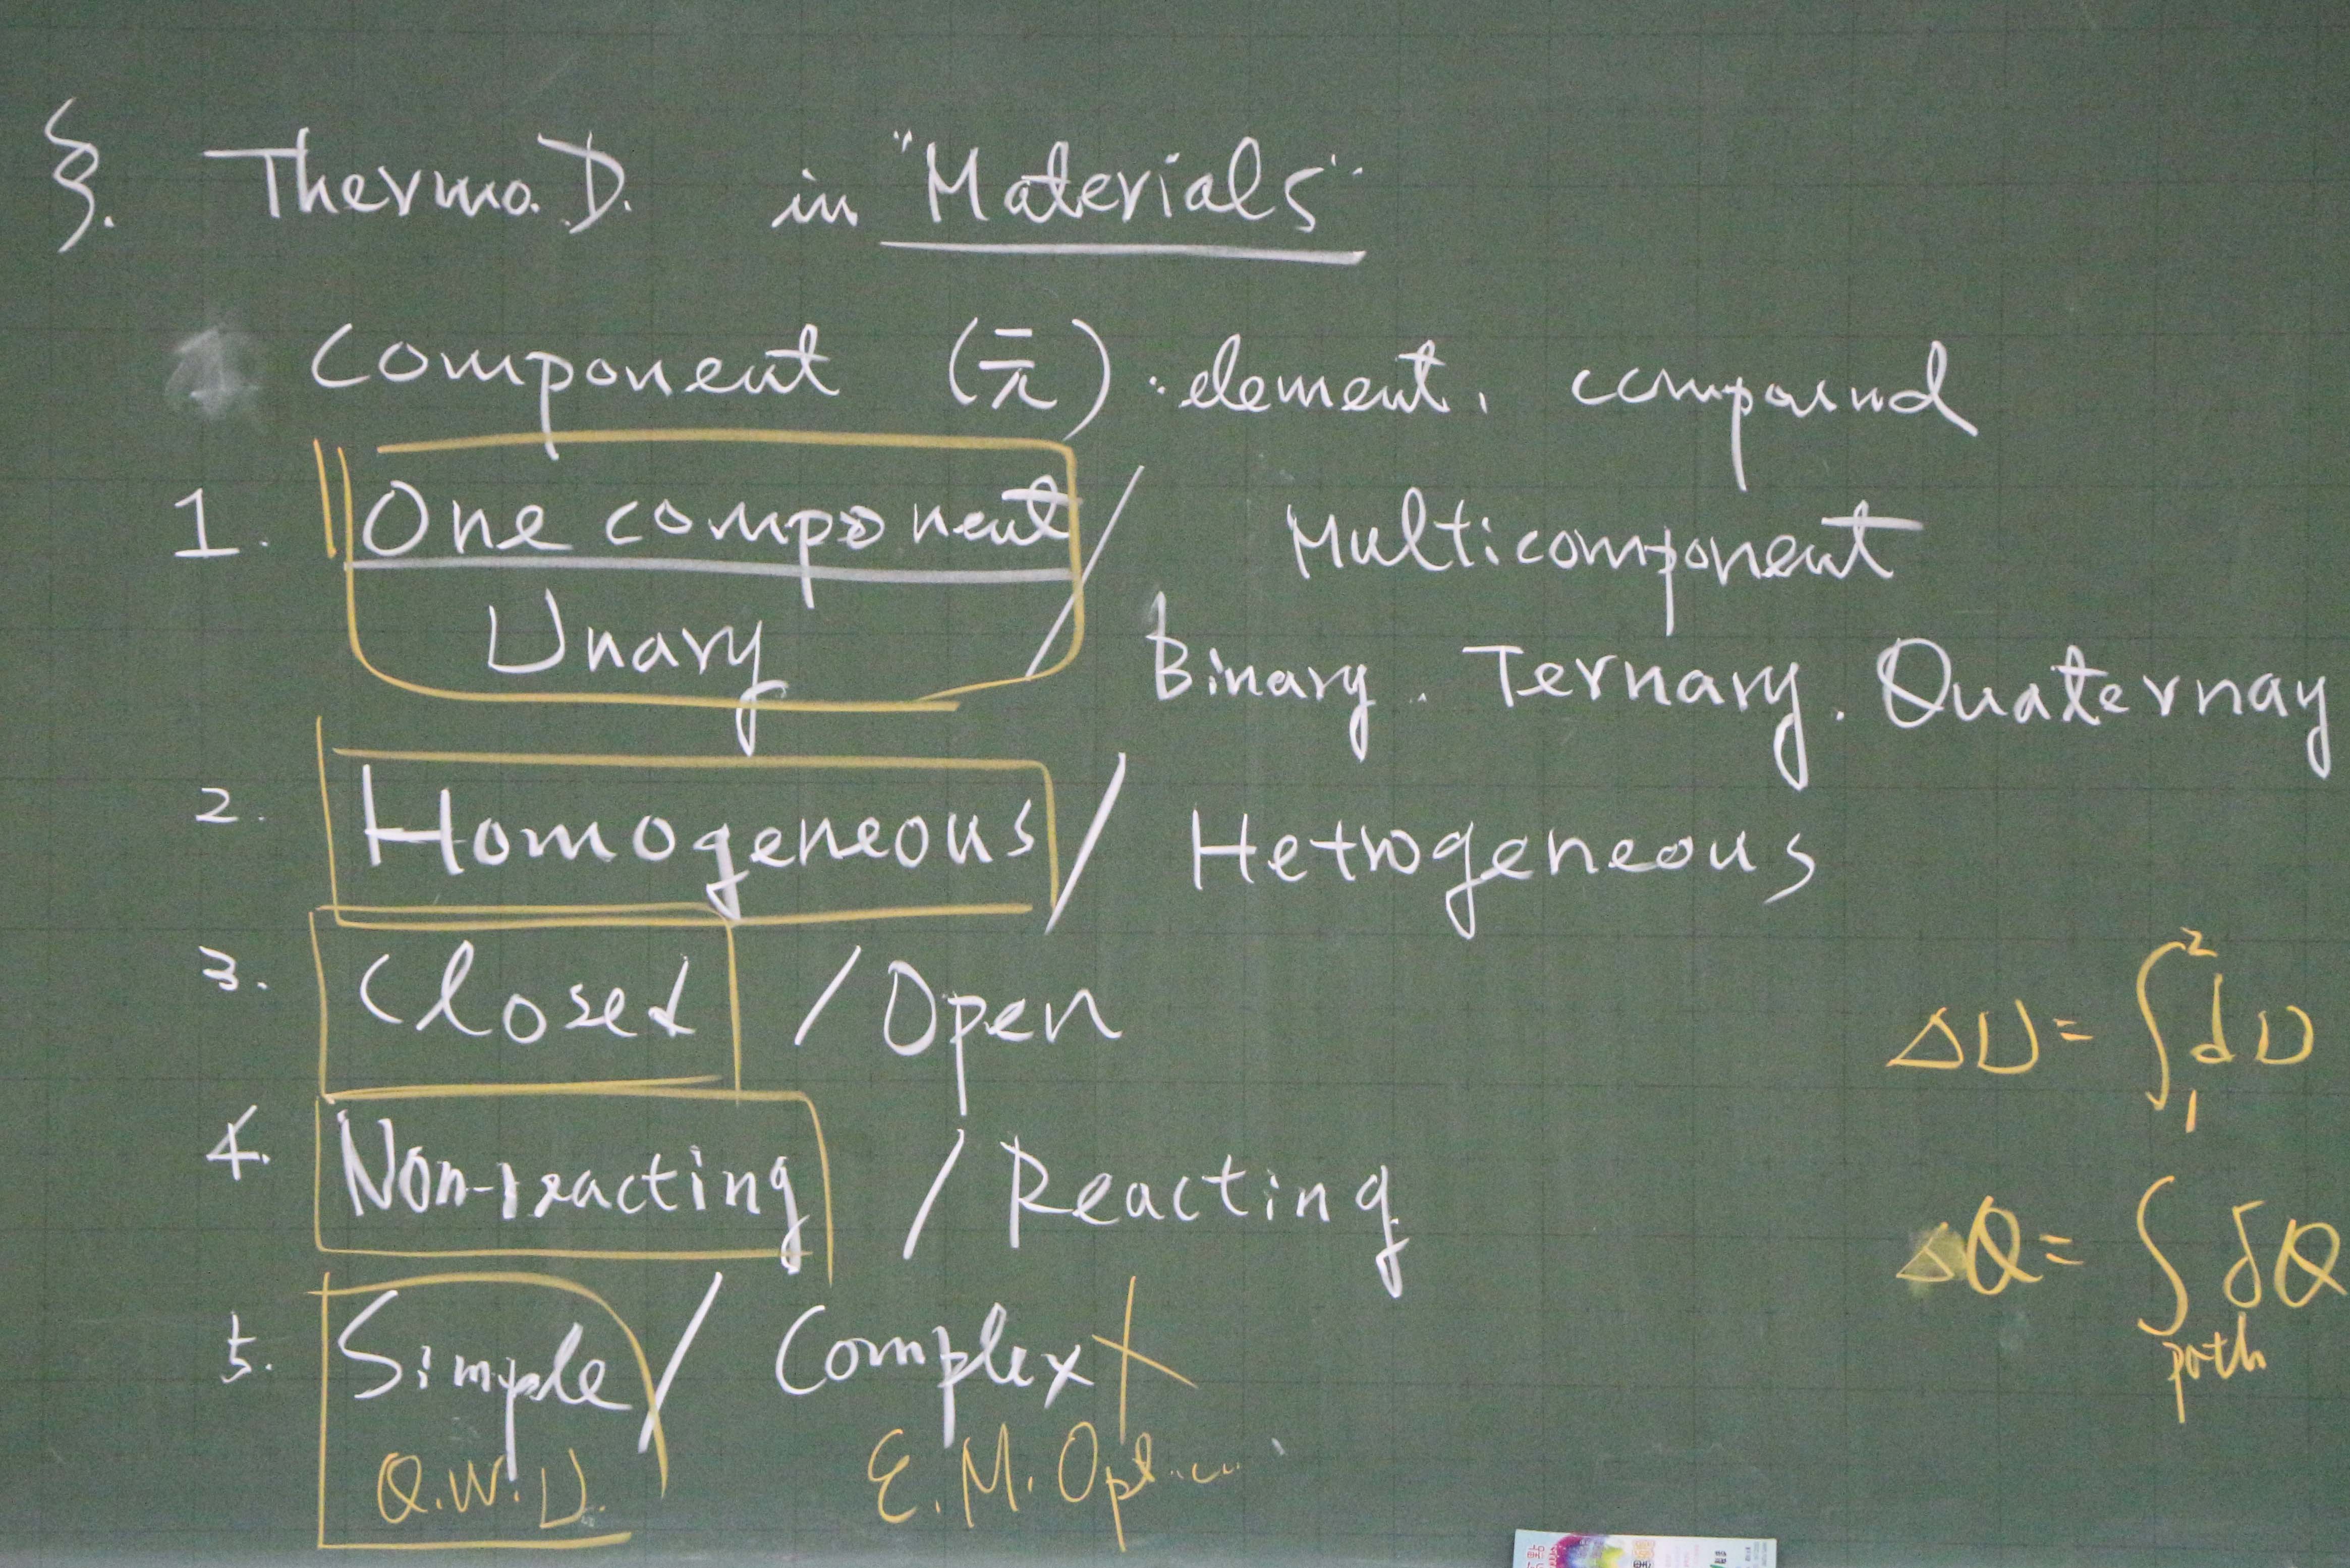 §. Thermo.D. in "Materials"
Component (元) : element, compound
1. One component / Multicomponent
Unary Binary. Ternary. Quaternay
2. Homogeneous / Hetrogeneous
3. Closed / Open
4. Non-reacting / Reacting
5. Simple / Complex
Q.W.U. E.M.Opt
ΔU = ∫₁² dU
ΔQ = ∫path δQ